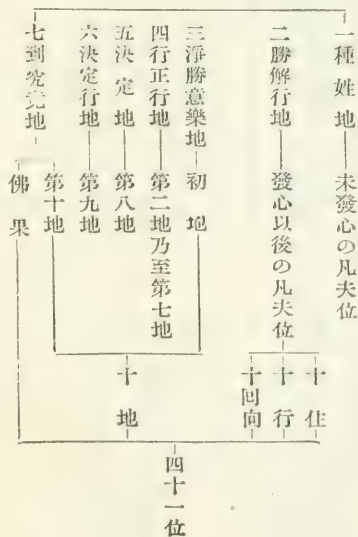 一種姓地──未發心の凡夫位
二勝解行地──發心以後の凡夫位
十住
十行
十回向
三淨勝意樂地─初地
四行正行地──第二地乃至第七地
五決定地──第八地
六決定行地──第九地
七到究竟地
第十地
佛果
十地
四十一位